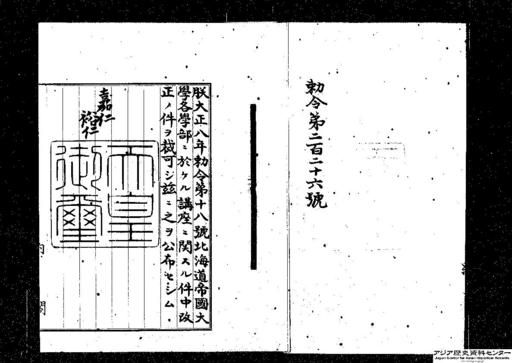 勅令第二百二十六號
朕大正八年勅令第十八號北海道帝國大
學各學部ニ於ケル講座ニ関スル件中改
正ノ件ヲ裁可シ茲ニ之ヲ公布セシム
嘉仁
裕仁
天皇
御璽
内閣
アジア歴史資料センター
Japan Center for Asian Historical Records